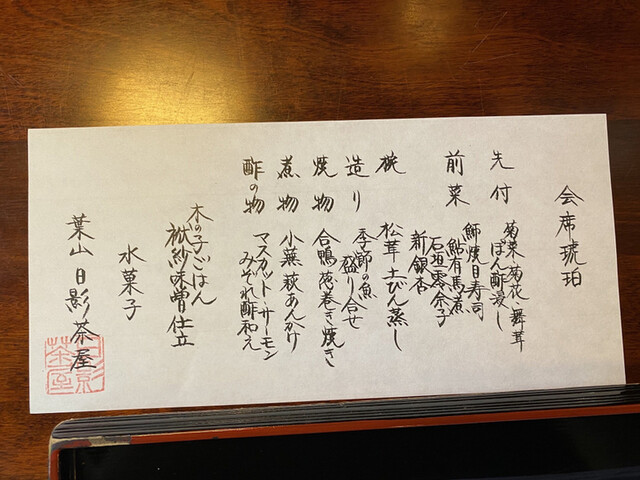 会席琥珀
先付 菊菜 菊花 舞茸
ぽん酢浸し
前菜 鰤焼目寿司
鮎有馬煮
石垣零余子
新銀杏
椀 松茸土びん蒸し
造り 季節の魚
盛り合せ
焼物 合鴨葱巻き焼き
煮物 小蕪萩あんかけ
酢の物 マスカット サーモン
みぞれ酢和え
木の子ごはん
袱紗味噌仕立
水菓子
葉山 日影茶屋
日影
茶屋